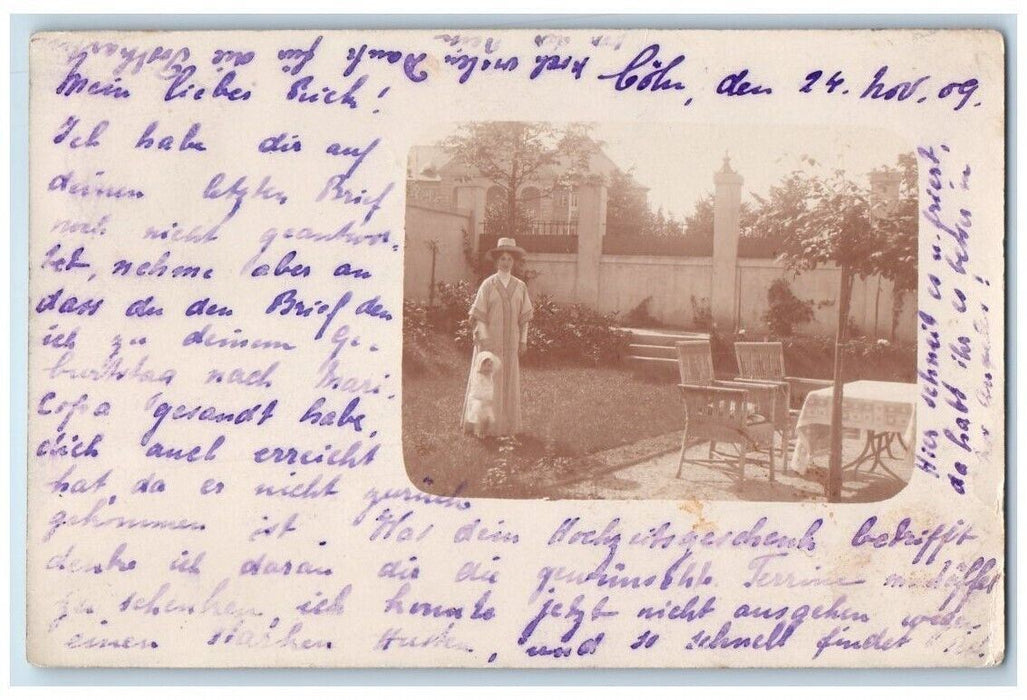 Cöln, den 24. Nov. 09.
Mein lieber Brich!
Ich habe dir auf
deinen letzten Brief
noch nicht geantwor-
tet, nehme aber an
dass du den Brief den
ich zu deinem Ge-
burtstag nach Mari
Copa gesandt habe,
dich auch erreicht
hat, da er nicht zurück
gekommen ist. Was dein Hochzeitsgeschenk betrifft
denke ich daran dir die gewünschte Terrine
zu schenken, ich konnte jetzt nicht ausgehen wegen
einen starken Husten, und so schnell findet
Hier schneit es u. friert,
da habt ihr es besser in
Los Angeles!
Noch vielen Dank für die Postkarten